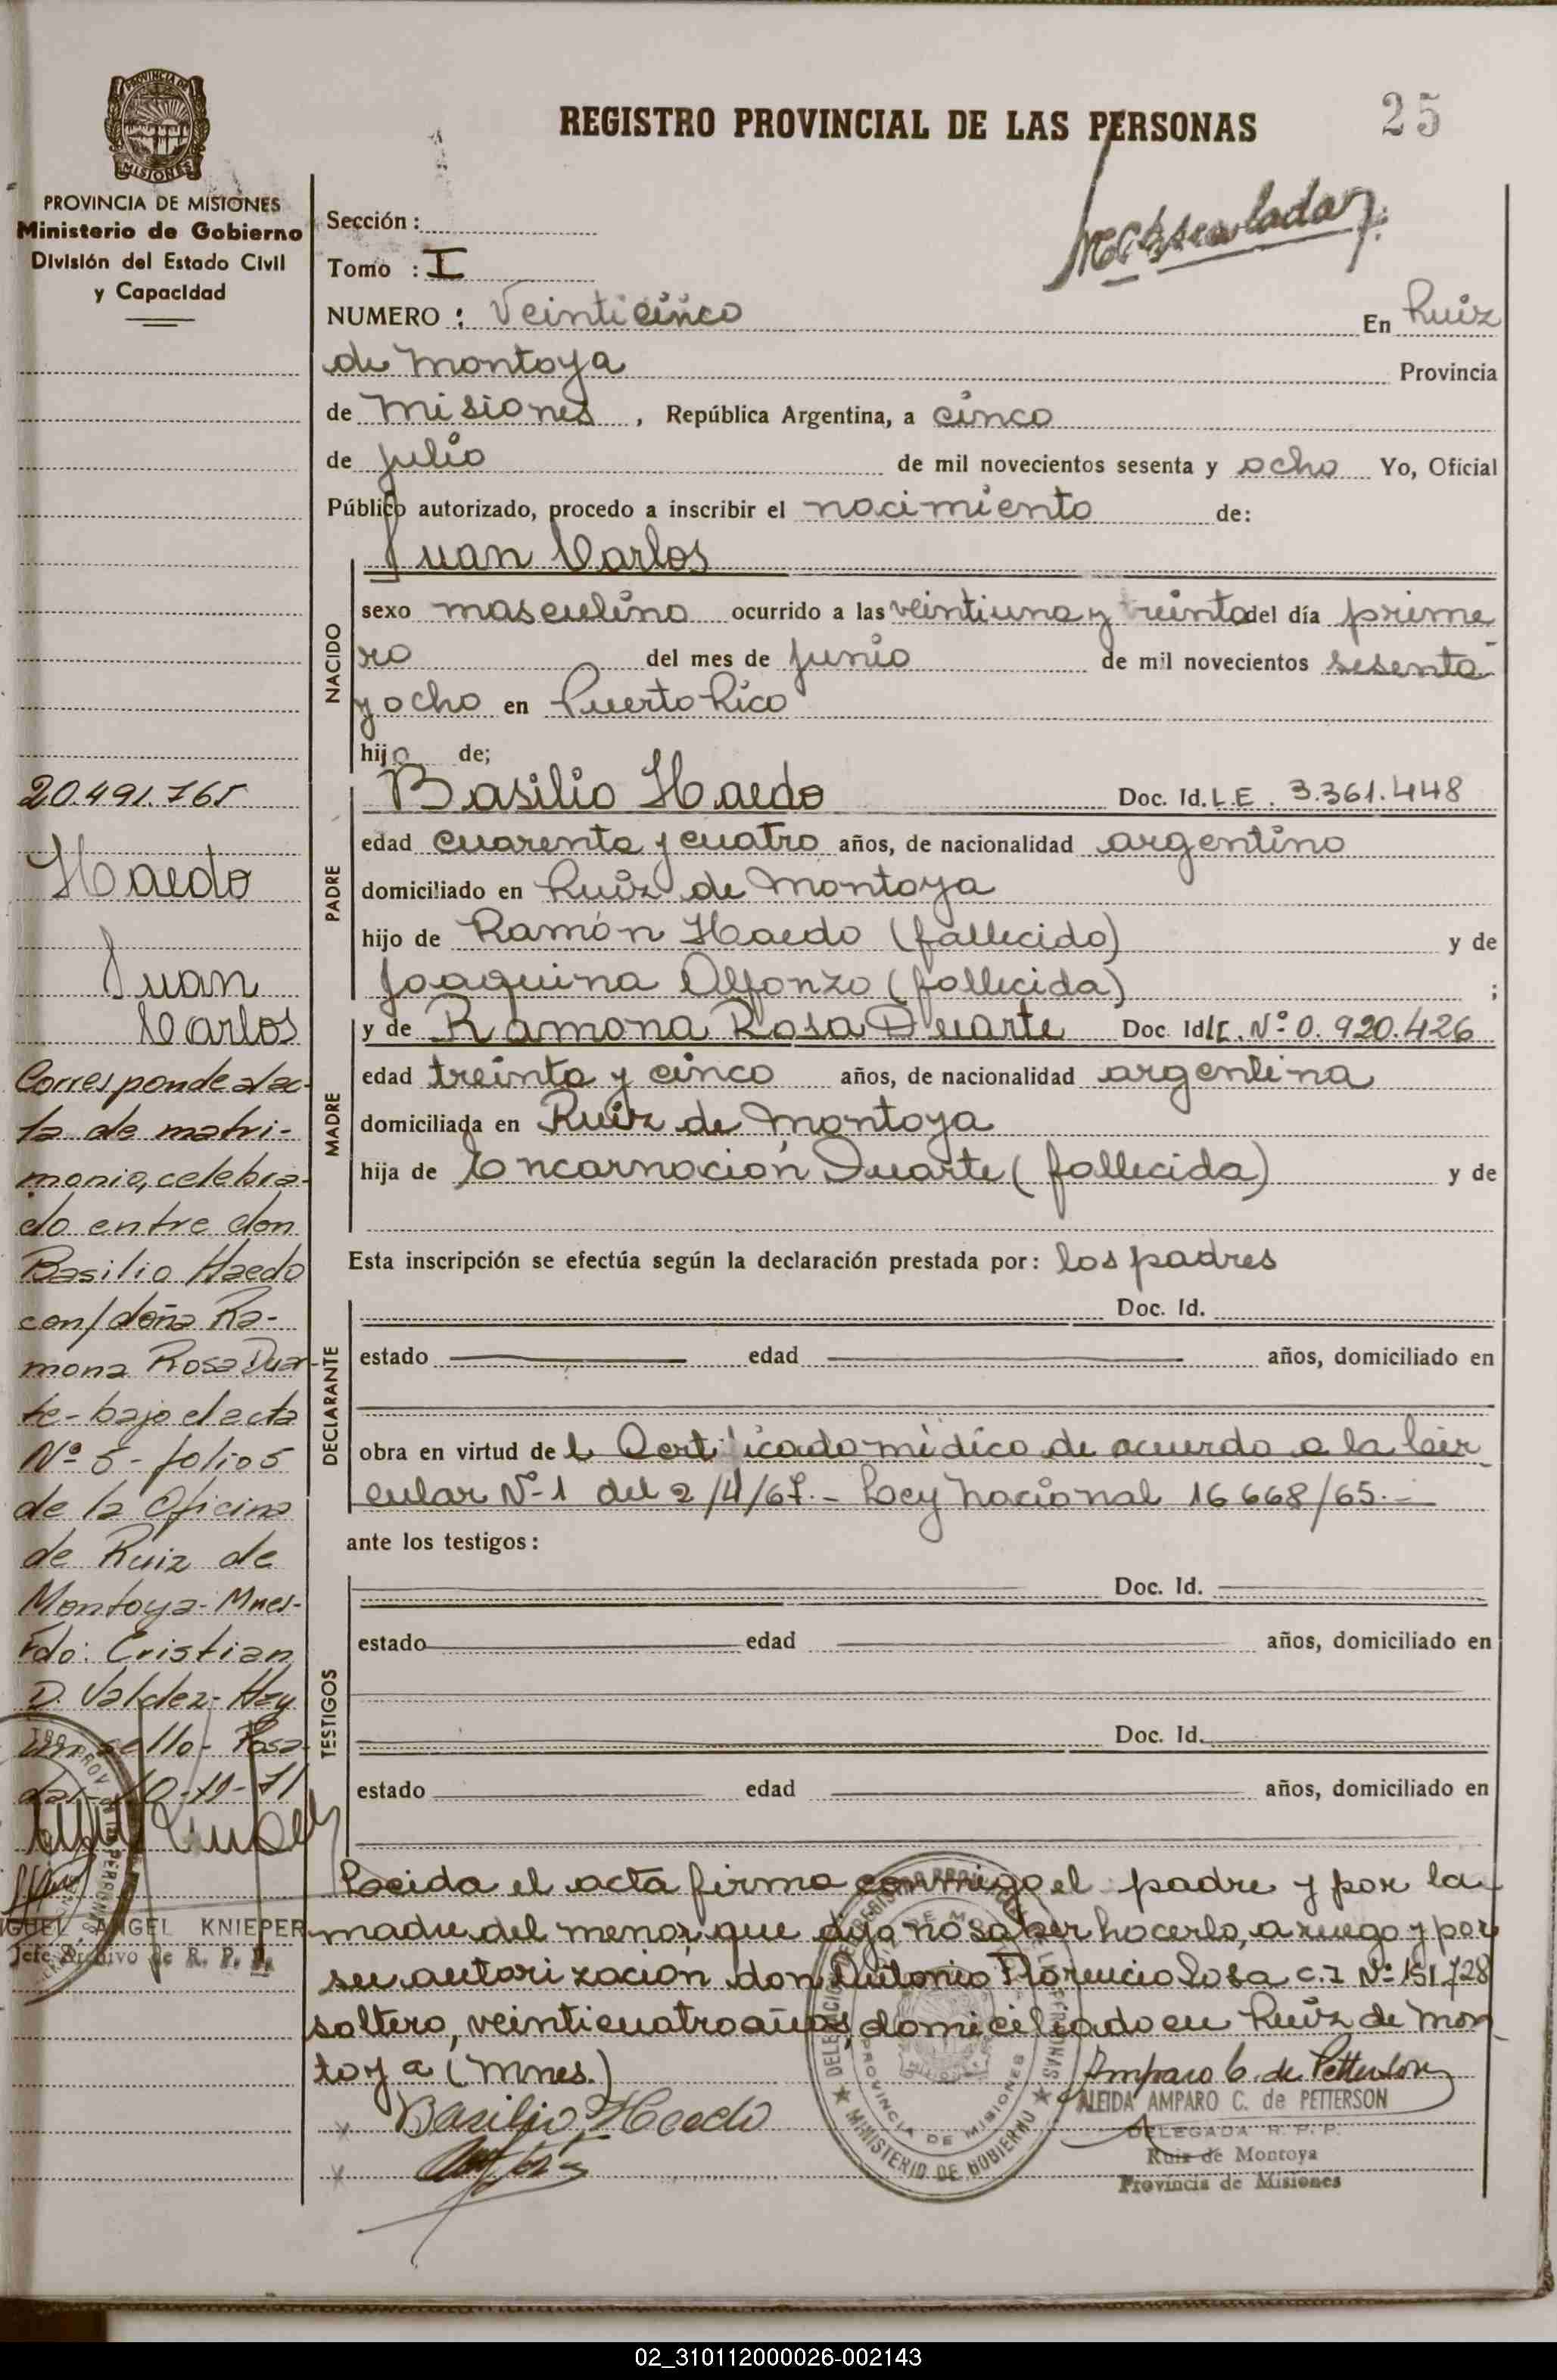 REGISTRO PROVINCIAL DE LAS PERSONAS
25
PROVINCIA DE
MISIONES
PROVINCIA DE MISIONES
Ministerio de Gobierno
División del Estado Civil
y Capacidad
Sección:
Tomo : I
NUMERO : Veinticinco En Ruiz
de Montoya Provincia
de Misiones, República Argentina, a cinco
de julio de mil novecientos sesenta y ocho Yo, Oficial
Público autorizado, procedo a inscribir el nacimiento de:
Juan Carlos
NACIDO
sexo masculino ocurrido a las veintiuna y treinta del día prime
ro del mes de junio de mil novecientos sesenta
y ocho en Puerto Rico
hijo de;
PADRE
Basilio Haedo Doc. Id. L.E. 3.361.448
edad cuarenta y cuatro años, de nacionalidad argentino
domiciliado en Ruiz de Montoya
hijo de Ramón Haedo (fallecido) y de
Joaquina Alfonzo (fallecida) ;
MADRE
y de Ramona Rosa Duarte Doc. Id. Nº 0.920.426
edad treinta y cinco años, de nacionalidad argentina
domiciliada en Ruiz de Montoya
hija de Encarnación Duarte (fallecida) y de
Esta inscripción se efectúa según la declaración prestada por: los padres
DECLARANTE
Doc. Id.
estado edad años, domiciliado en
obra en virtud del Certificado médico de acuerdo a la Cir
cular Nº 1 del 2/4/67.- Ley Nacional 16668/65.-
ante los testigos:
TESTIGOS
Doc. Id.
estado edad años, domiciliado en
Doc. Id.
estado edad años, domiciliado en
Leida el acta firma conmigo el padre y por la
madre del menor que dijo no saber hacerlo, a ruego y por
su autorización don Antonio Florencio Sosa C.I Nº 151.728
soltero, veinticuatro años, domiciliado en Ruiz de Mon
toya (Mnes.)
Basilio Haedo
Amparo C. de Petterson
ALEIDA AMPARO C. de PETTERSON
DELEGADA R. P. P.
Ruiz de Montoya
Provincia de Misiones
MINISTERIO DE GOBIERNO
PROVINCIA DE MISIONES
20.491.765
Haedo
Juan
Carlos
Corresponde al ac-
ta de matri-
monio, celebra-
do entre don
Basilio Haedo
con/doña Ra-
mona Rosa Duar-
te- bajo el acta
Nº 5- folio 5
de la Oficina
de Ruiz de
Montoya- Mnes-
Fdo: Cristian
D. Valdez- Hay
un sello- Posa-
das-
MIGUEL ANGEL KNIEPER
Jefe Archivo de R. P. P.
02_310112000026-002143